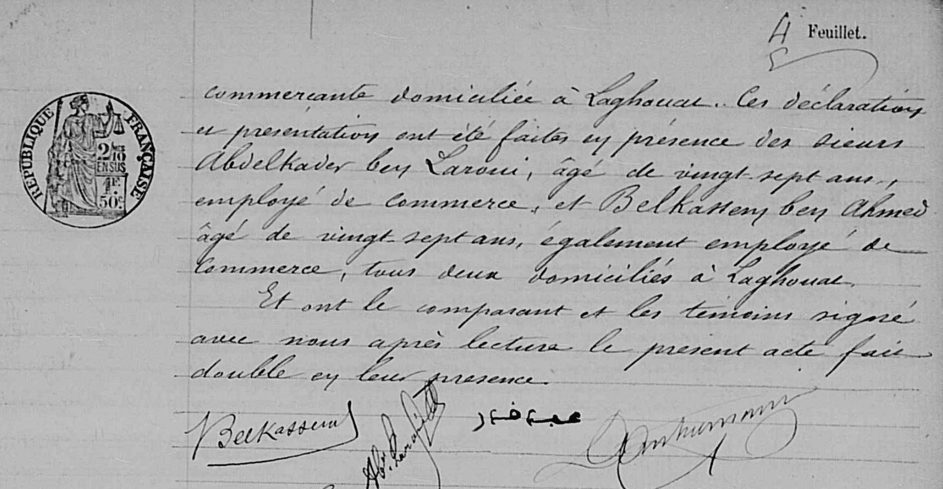 4 Feuillet.
RÉPUBLIQUE FRANÇAISE
2/10 EN SUS
1F 50c
commercante domiciliée à Laghouat. Ces déclaration
et presentation ont été faites en présence des sieurs
Abdelkader ben Laroui, âgé de vingt-sept ans,
employé de commerce, et Belkassem ben Ahmed
âgé de vingt-sept ans, également employé de
commerce, tous deux domiciliés à Laghouat.
Et ont le comparant et les temoins signé
avec nous après lecture le présent acte fait
double en leur presence.
Belkassem